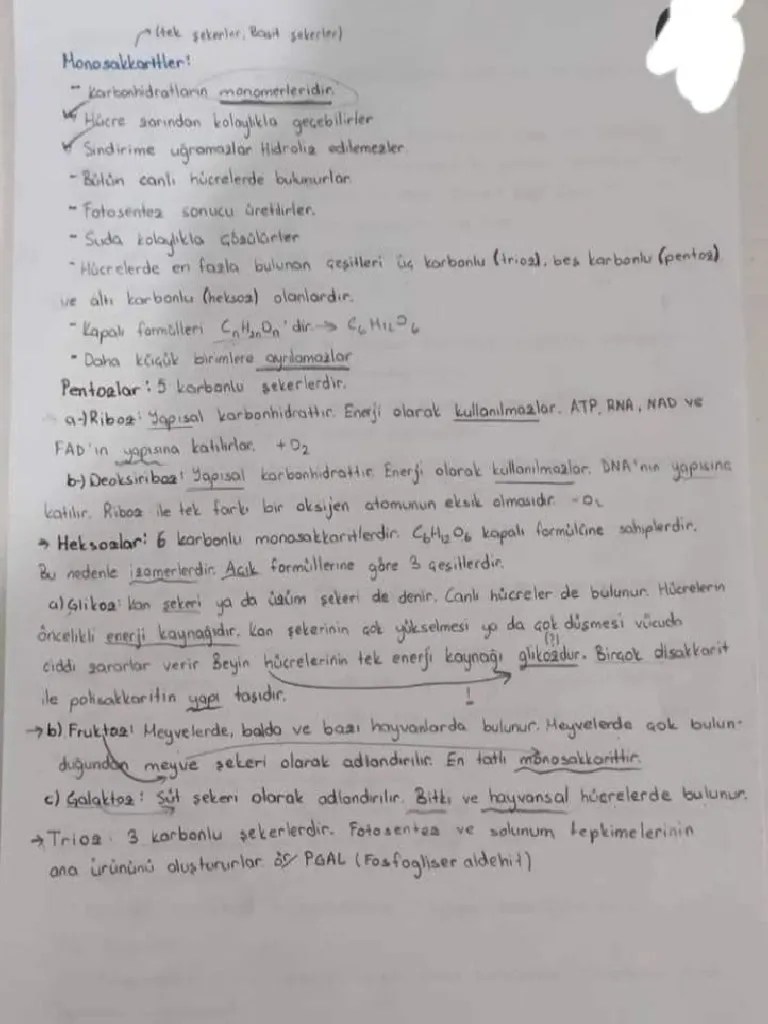 (tek şekerler, Basit şekerler)
Monosakkaritler:
- Karbonhidratların monomerleridir.
Hücre zarından kolaylıkla geçebilirler
Sindirime uğramazlar Hidroliz edilemezler
- Bütün canlı hücrelerde bulunurlar
- Fotosentez sonucu üretilirler.
- Suda kolaylıkla çözülürler
- Hücrelerde en fazla bulunan çeşitleri üç karbonlu (trioz), beş karbonlu (pentoz)
ve altı karbonlu (heksoz) olanlardır.
- Kapalı formülleri CnH2nOn' dir → C6H12O6
- Daha küçük birimlere ayrılamazlar
Pentozlar: 5 karbonlu şekerlerdir.
a-) Riboz: Yapısal karbonhidrattır. Enerji olarak kullanılmazlar. ATP, RNA, NAD ve
FAD'ın yapısına katılırlar. +O2
b-) Deoksiriboz: Yapısal karbonhidrattır. Enerji olarak kullanılmazlar. DNA'nın yapısına
katılır. Riboz ile tek farkı bir oksijen atomunun eksik olmasıdır -O2
→ Heksozlar: 6 karbonlu monosakkaritlerdir. C6H12O6 kapalı formülüne sahiplerdir.
Bu nedenle izomerlerdir. Açık formüllerine göre 3 çeşillerdir.
a) Glikoz: Kan şekeri ya da üzüm şekeri de denir. Canlı hücreler de bulunur. Hücrelerin
öncelikli enerji kaynağıdır. Kan şekerinin çok yükselmesi ya da çok düşmesi vücuda
ciddi zararlar verir Beyin hücrelerinin tek enerji kaynağı (?) glikozdur. Birçok disakkarit
ile polisakkaritin yapı taşıdır. !
→ b) Fruktoz: Meyvelerde, balda ve bazı hayvanlarda bulunur. Meyvelerde çok bulun-
duğundan meyve şekeri olarak adlandırılır. En tatlı monosakkarittir.
c) Galaktoz: Süt şekeri olarak adlandırılır. Bitki ve hayvansal hücrelerde bulunur.
→ Trioz. 3 karbonlu şekerlerdir. Fotosentez ve solunum tepkimelerinin
ana ürününü oluştururlar. ör/ PGAL (Fosfogliser aldehit)